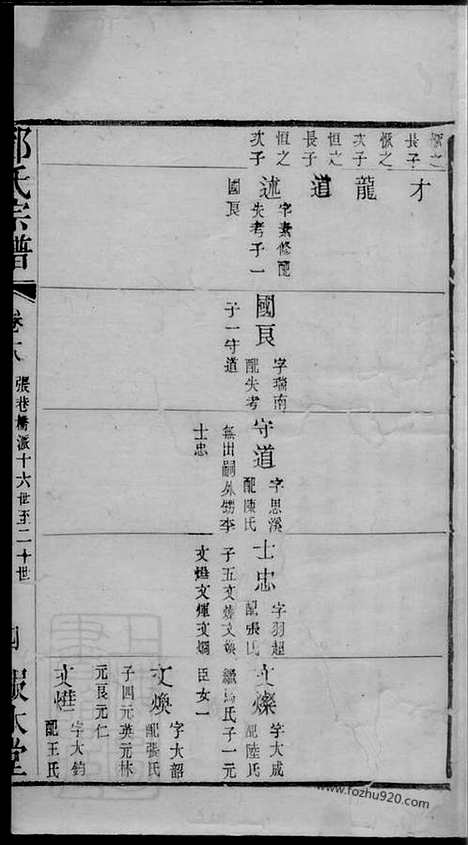 㮣之
長子
才
㮣之
次子
龍
恒之
長子
道
恒之
次子
述
字素修配
失考子一
國良
國良
字瑞南
配失考
子一守道
守道
字思溪
配陳氏
無出嗣外甥李
士忠
士忠
字羽超
配張氏
子五文燦文煥
文燈文煇文炯
文燦
字大成
配陸氏
繼馬氏子一元
臣女一
文煥
字大韶
配張氏
子四元英元林
元良元仁
文燈
字大鈞
配王氏
氏宗譜
張巷橋派十六世至二十世
www.fozhu920.com